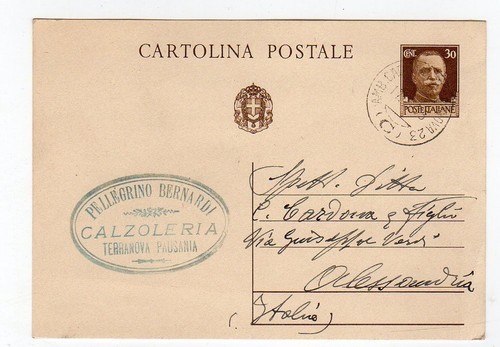 CARTOLINA POSTALE
CENT. 30
POSTE ITALIANE
AMB.
23 (C)
PELLEGRINO BERNARDI
CALZOLERIA
TERRANOVA PAUSANIA
Spett. Ditta
Cardona e Figlio
Via Giuseppe Verdi
Alessandria
(Italia)